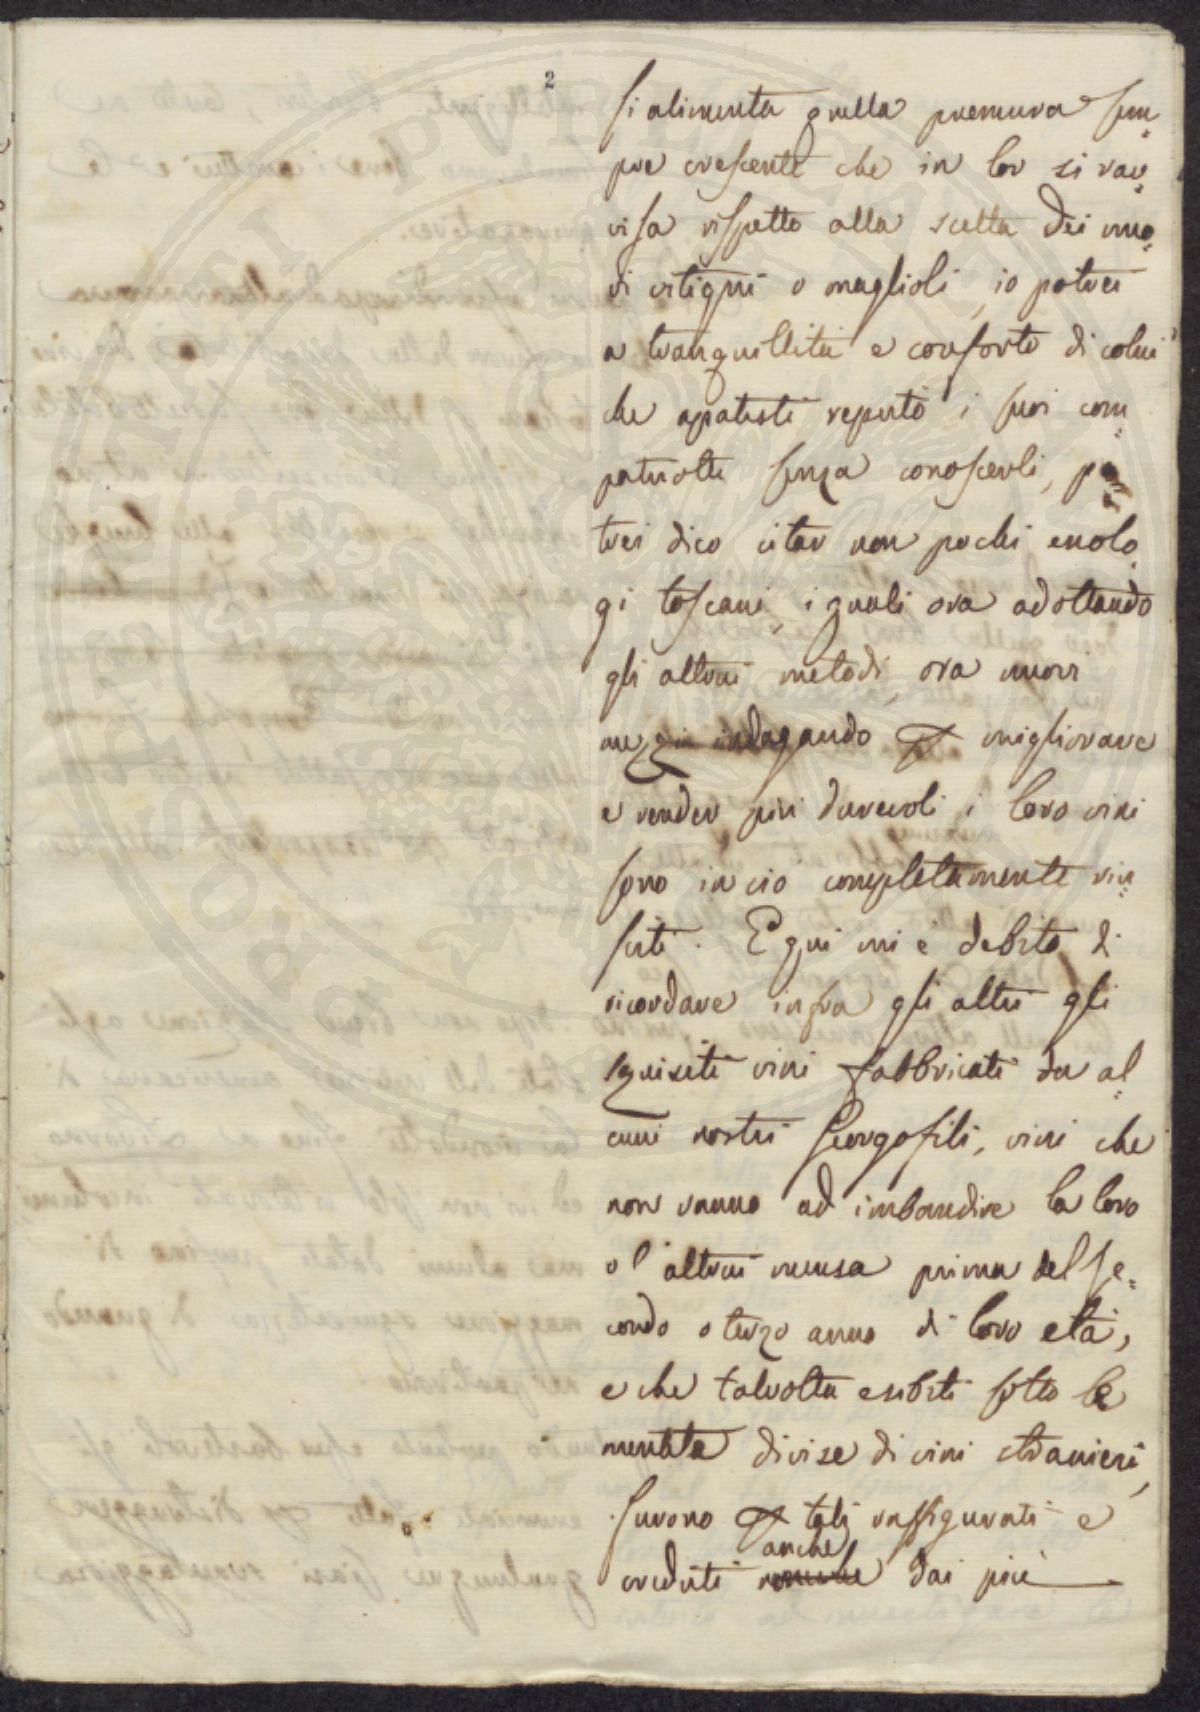 2
si alimenta quella premura sem=
pre crescente che in lor si rav=
visa rispetto alla scelta dei nuo=
vi vitigni o maglioli, io potrei
a tranquillità e conforto di colui
che apatisti reputò i suoi com=
patriotti senza conoscerli, po=
trei dico citar non pochi enolo=
gi toscani, i quali ora adottando
gli altrui metodi, ora nuovi
mezzi indagando p migliorare
e render più durevoli i loro vini
sono in ciò completamente riu=
sciti. E qui mi è debito di
ricordare infra gli altri gli
squisiti vini fabbricati da al=
cuni nostri Georgofili, vini che
non vanno ad imbandire la loro
o l'altrui mensa prima del se=
condo o terzo anno di loro età,
e che talvolta esibiti sotto le
mentite divise di vini stranieri,
furono p tali raffigurati e
anche
creduti dai più